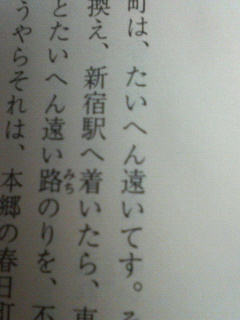 町は、たいへん遠いです。そ
換え、新宿駅へ着いたら、東
とたいへん遠い路みちのりを、不
うやらそれは、本郷の春日町